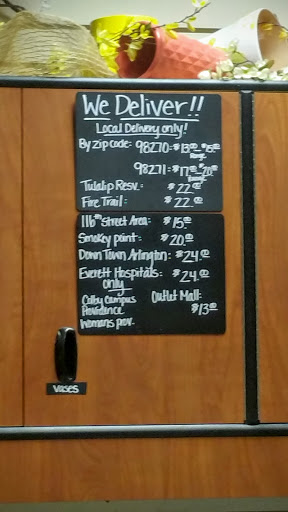 We Deliver!!
Local Delivery only!
By zip code: 98270: $13.00 - $15.00
Range
98271: $17.00 - $20.00
Range
Tulalip Resv.: $22.00
Fire Trail: $22.00
116th Street Area: $15.00
Smokey point: $20.00
Down Town Arlington: $24.00
Everett Hospitals: $24.00
only
Colby Campus Outlet Mall:
Providence $13.00
Womans prov.
Vases